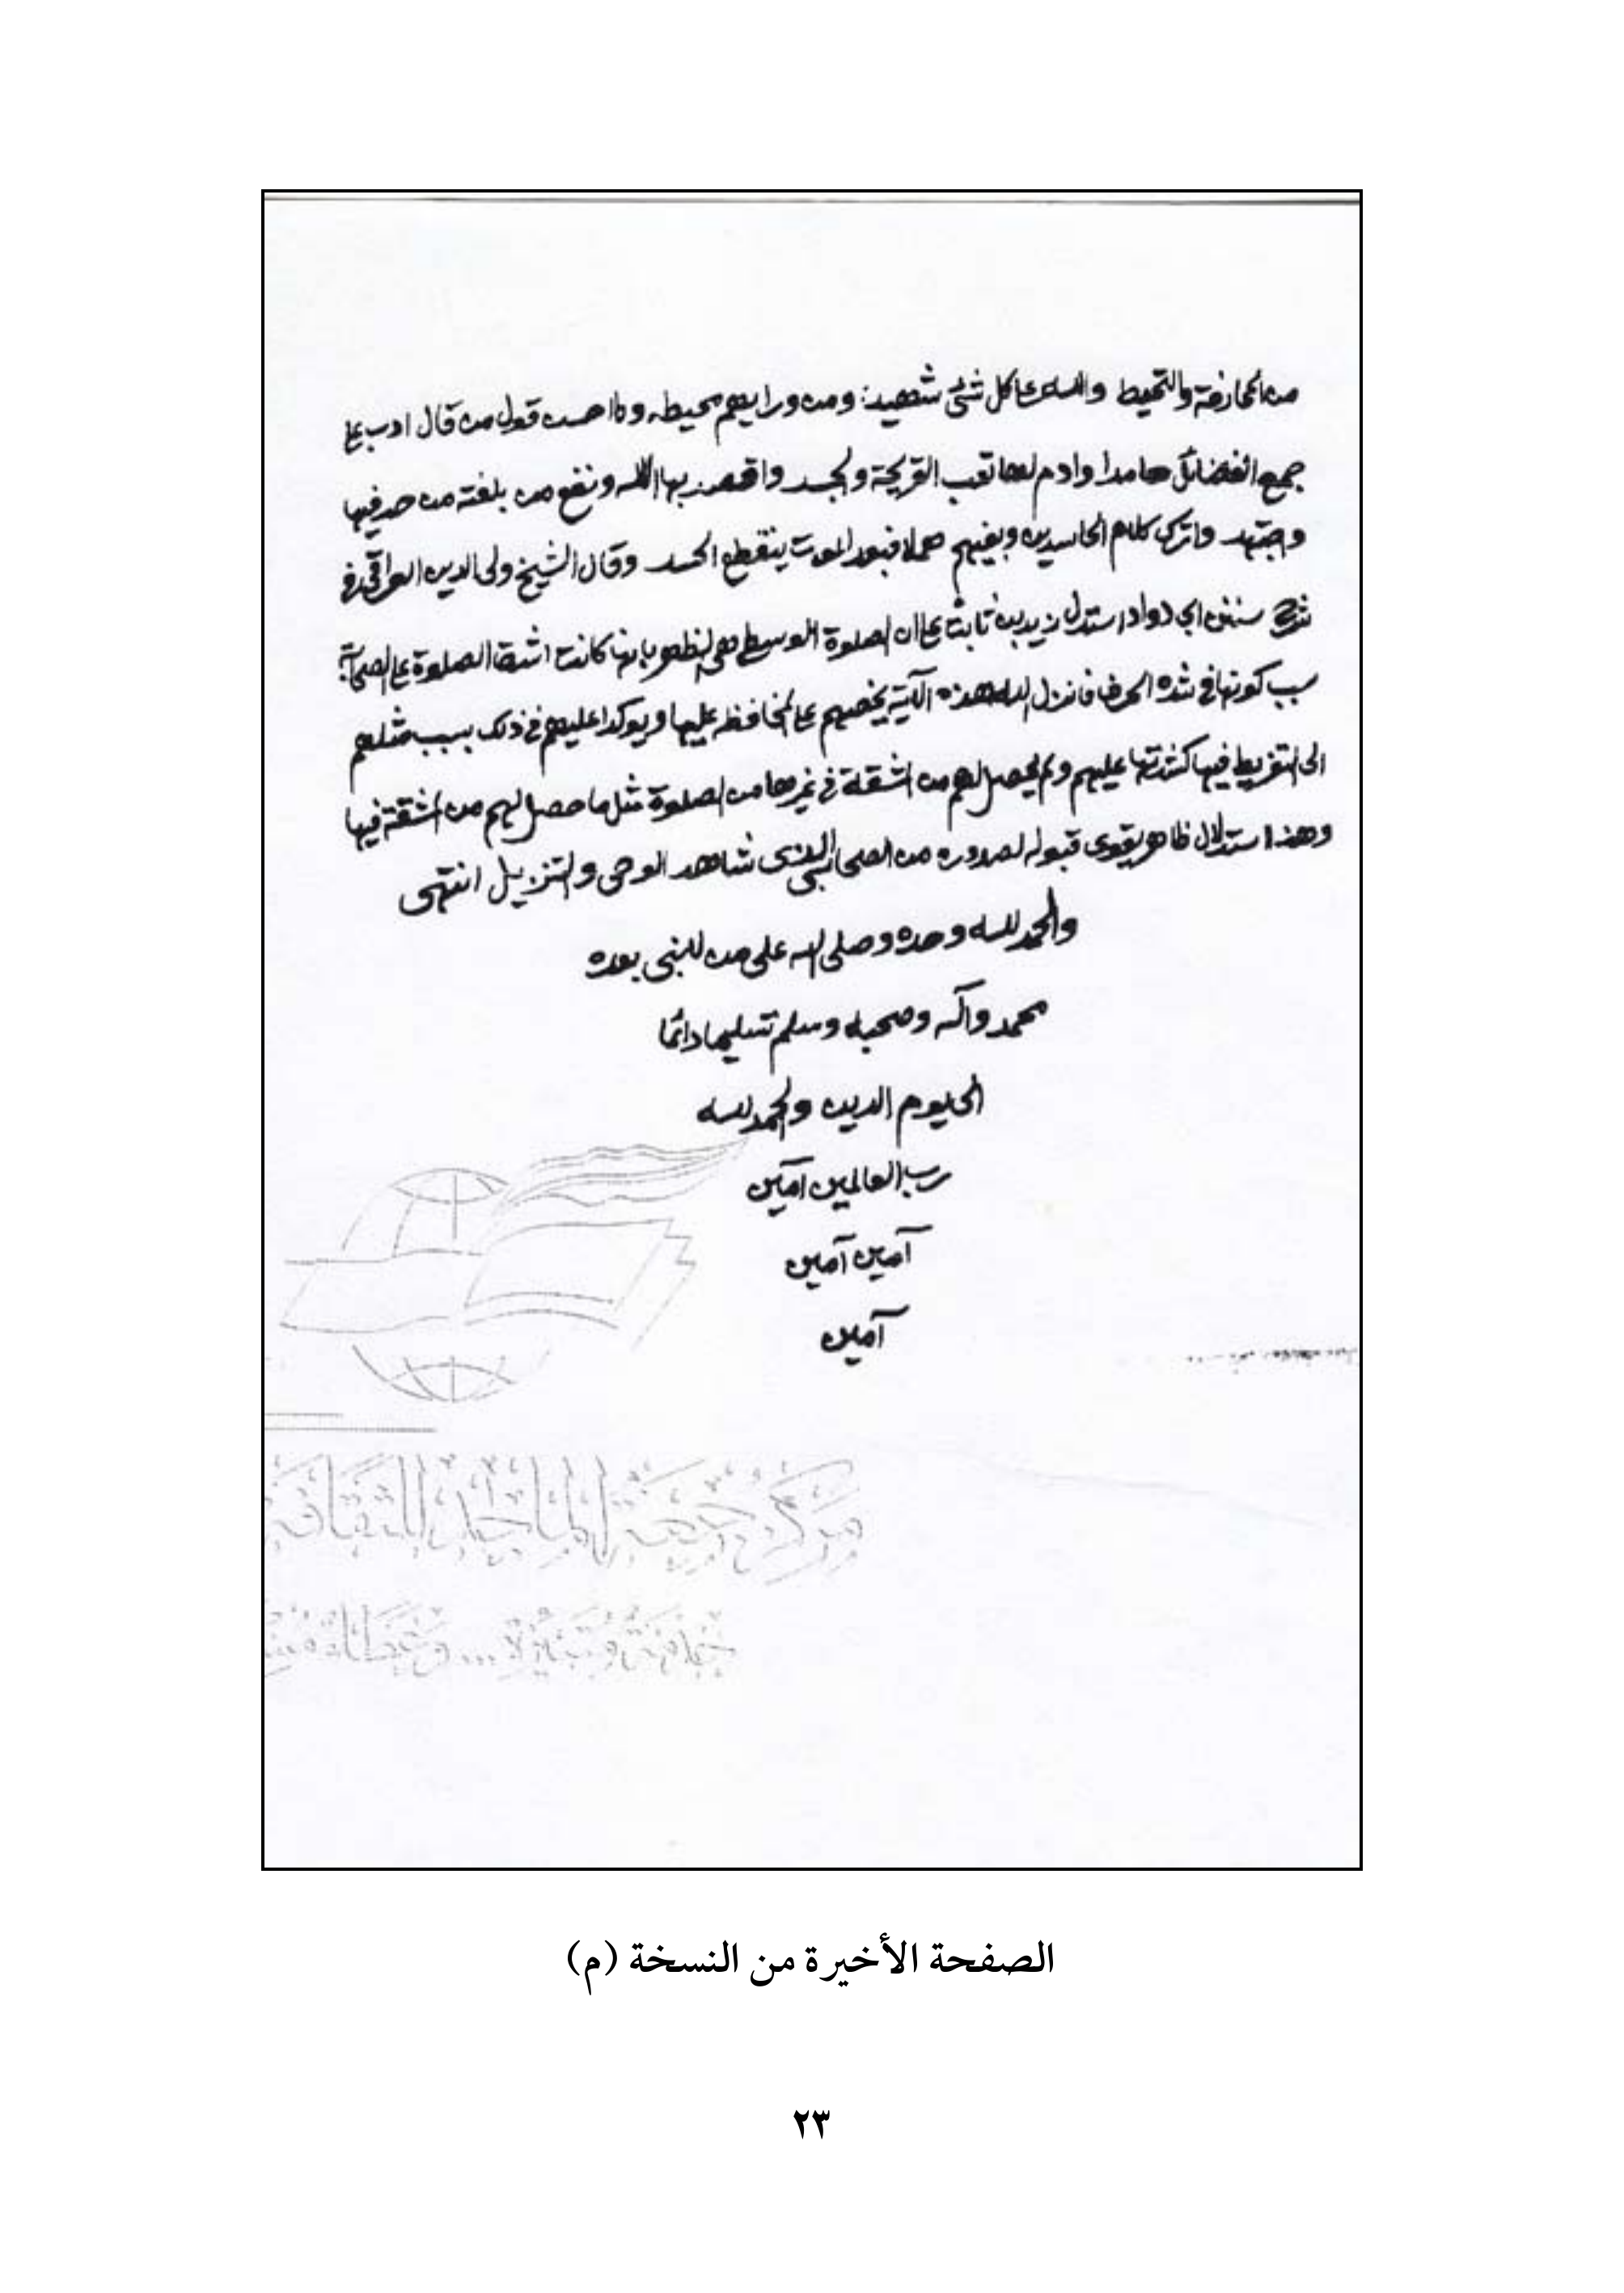 من المجازفة والتخيط والله عا كل شئ شهيد: ومن ورايهم محيط وما احسن قول من قال ادب عا
جمع الفضائل حامدا وادم لها تعب القريحة والجسد واقصد بها الله ونفع من بلغته من جد فيها
واجتهد واترك كلام الحاسدين وبغيهم هملا فبعد الموت ينقطع الحسد وقال الشيخ ولى الدين العراقى فى
شرح سنن ابى دواد استدل زيد بن ثابت عا ان الصلوة الوسطى هى الظهر بانها كانت اشق الصلوة عا الصحابة
سبب كونها فى شدة الحر فانزل الله هذه الآية يحضهم عا المحافظة عليها ويوكدا عليهم فى ذلك بسبب مثلهم
الى التفريط فيها كشدتها عليهم ولم يحصل لهم من اشقة فى غيرها من الصلوة مثل ما حصل لهم من المشقة فيها
وهذا استدلال ظاهر يقوى قبوله لصدوره من الصحابى الذى شاهد الوحى والتنزيل انتهى
والحمد لله وحده وصلى الله على من للنبى بعده
محمد وآله وصحبه وسلم تسليما دائما
الى يوم الدين والحمد لله
رب العالمين آمين
آمين آمين
آمين
مركز جمعة الماجد للثقافة
الصفحة الأخيرة من النسخة (م)
٢٣